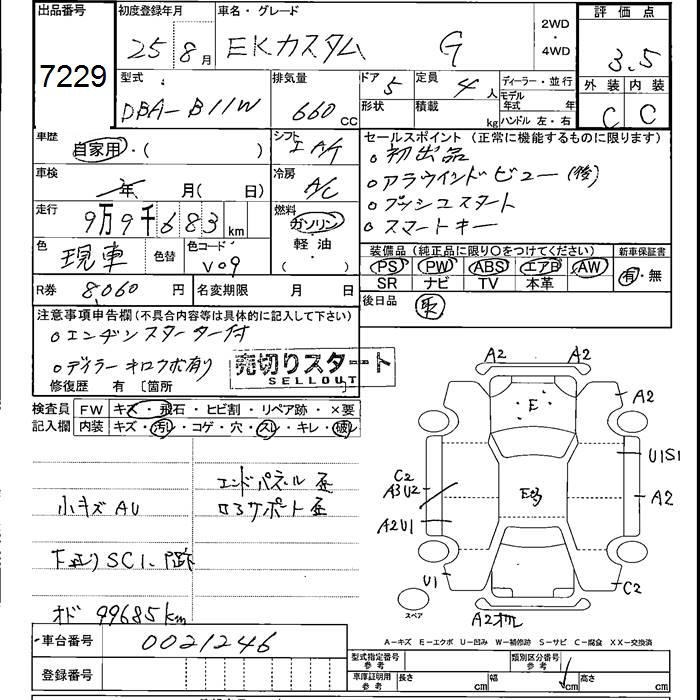 出品番号
7229
初度登録年月
25 8月
車名・グレード
EKカスタム G
2WD
・
4WD
評価点
3.5
外装 内装
C C
型式
DBA-B11W
排気量
660cc
ドア 5
形状
定員 4人
積載 kg
ディーラー・並行
モデル年式 年
ハンドル 左・右
車歴
自家用・( )
シフト
IAT
車検
年 月( 日)
冷房
A/C
走行
9万9千683km
燃料
ガソリン
軽油・
( )
色
現車
色替
色コード
V09
R券 8,060円
名変期限 月 日
セールスポイント(正常に機能するものに限ります)
○初出品
○アラウインドビュー(後)
○プッシュスタート
○スマートキー
装備品(純正品に限り○をつけてください)
新車保証書
PS PW ABS エアB AW
SR ナビ TV 本革
有・無
後日品
注意事項申告欄(不具合内容等は具体的に記入して下さい)
○エンヂンスターター付
○ディラーキロクボ有り
修復歴 有 〔箇所 〕
売切りスタート
SELLOUT
検査員 FW キズ・飛石・ヒビ割・リペア跡・×要
記入欄 内装 キズ・汚レ・コゲ・穴・スレ・キレ・破レ
小キズ AU
エンドパネル歪
ロアサポート歪
オド 99685km
A2 A2
A2
E
U1S1
C2
A3U2
A2
A2U1
U1
C2
A2
スペア
A-キズ E-エクボ U-凹み W-補修跡 S-サビ C-腐食 XX-交換済
車台番号 0021246
登録番号
型式指定番号
参考
類別区分番号
参考
車庫証明用
参考
長さ cm 幅 cm 高さ cm